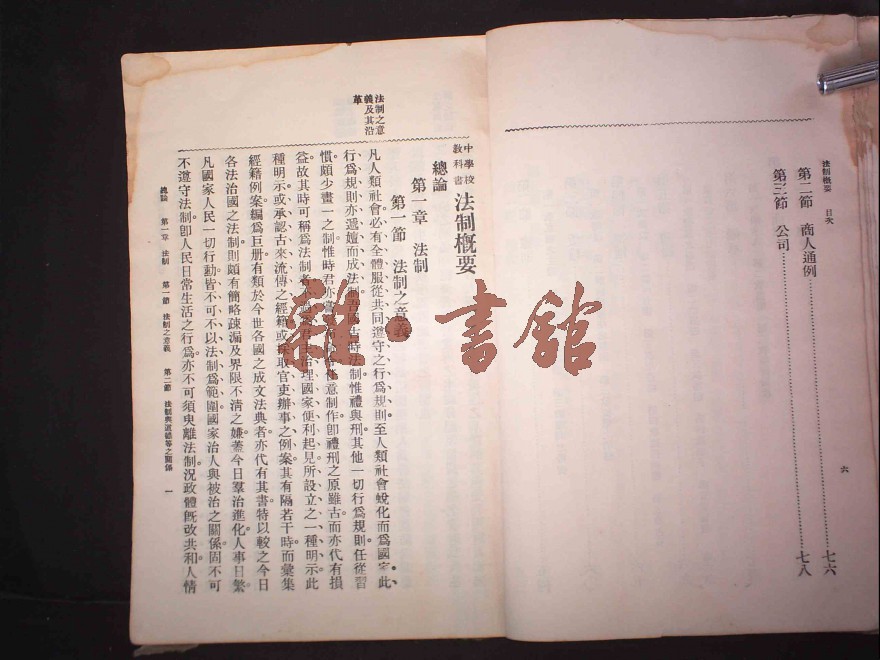 法制概要 目次
第二節 商人通例……七六
第三節 公司……七八
六
法制之意
義及其沿
革
中學校
教科書 法制概要
總論
第一章 法制
第一節 法制之意義
凡人類社會必有全體服從共同遵守之行爲規則至人類社會蛻化而爲國家此
行爲規則亦遞嬗而成法制吾國古時法制惟禮與刑其他一切行爲規則任從習
慣頗少畫一之制惟時君亦 意制作卽禮刑之原雖古而亦代有損
益故其時可稱爲法制者 治理國家便利起見所設立之一種明示此
種明示或承認古來流傳之經籍或採取官吏辦事之例案其有隔若干時而彙集
經籍例案編爲巨册有類於今世各國之成文法典者亦代有其書特以較之今日
各法治國之法制則頗有簡略疎漏及界限不清之嫌蓋今日羣治進化人事日繁
凡國家人民一切行動皆不可不以法制爲範圍國家治人與被治之關係固不可
不遵守法制卽人民日常生活之行爲亦不可須臾離法制況政體旣改共和人情
總論 第一章 法制 第一節 法制之意義 第二節 法制與道德等之關係 一
雜·書館